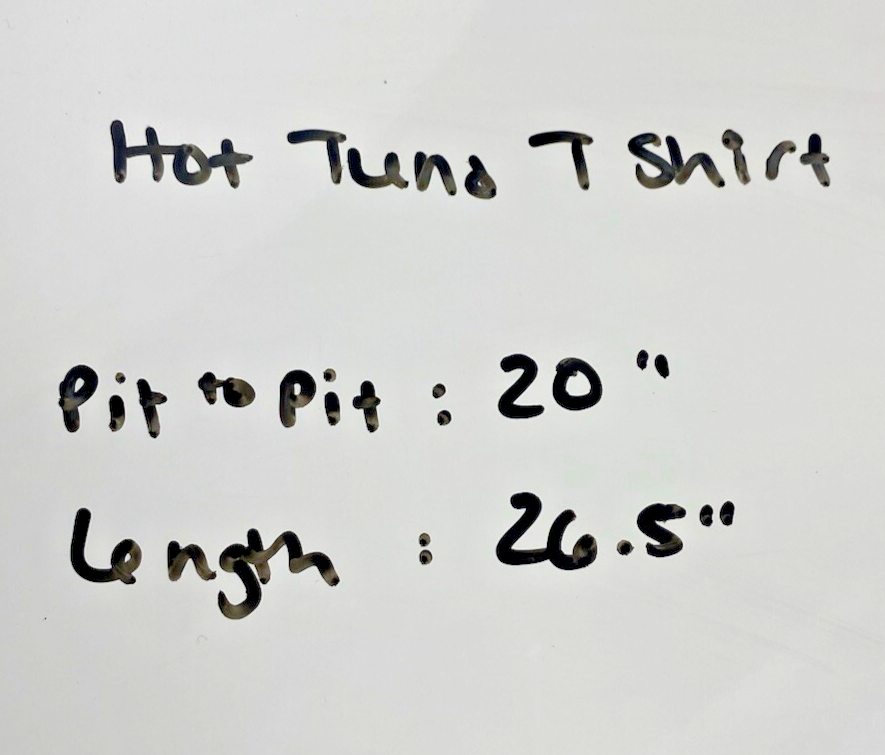 Hot Tuna T Shirt
Pit to Pit : 20"
Length : 26.5"